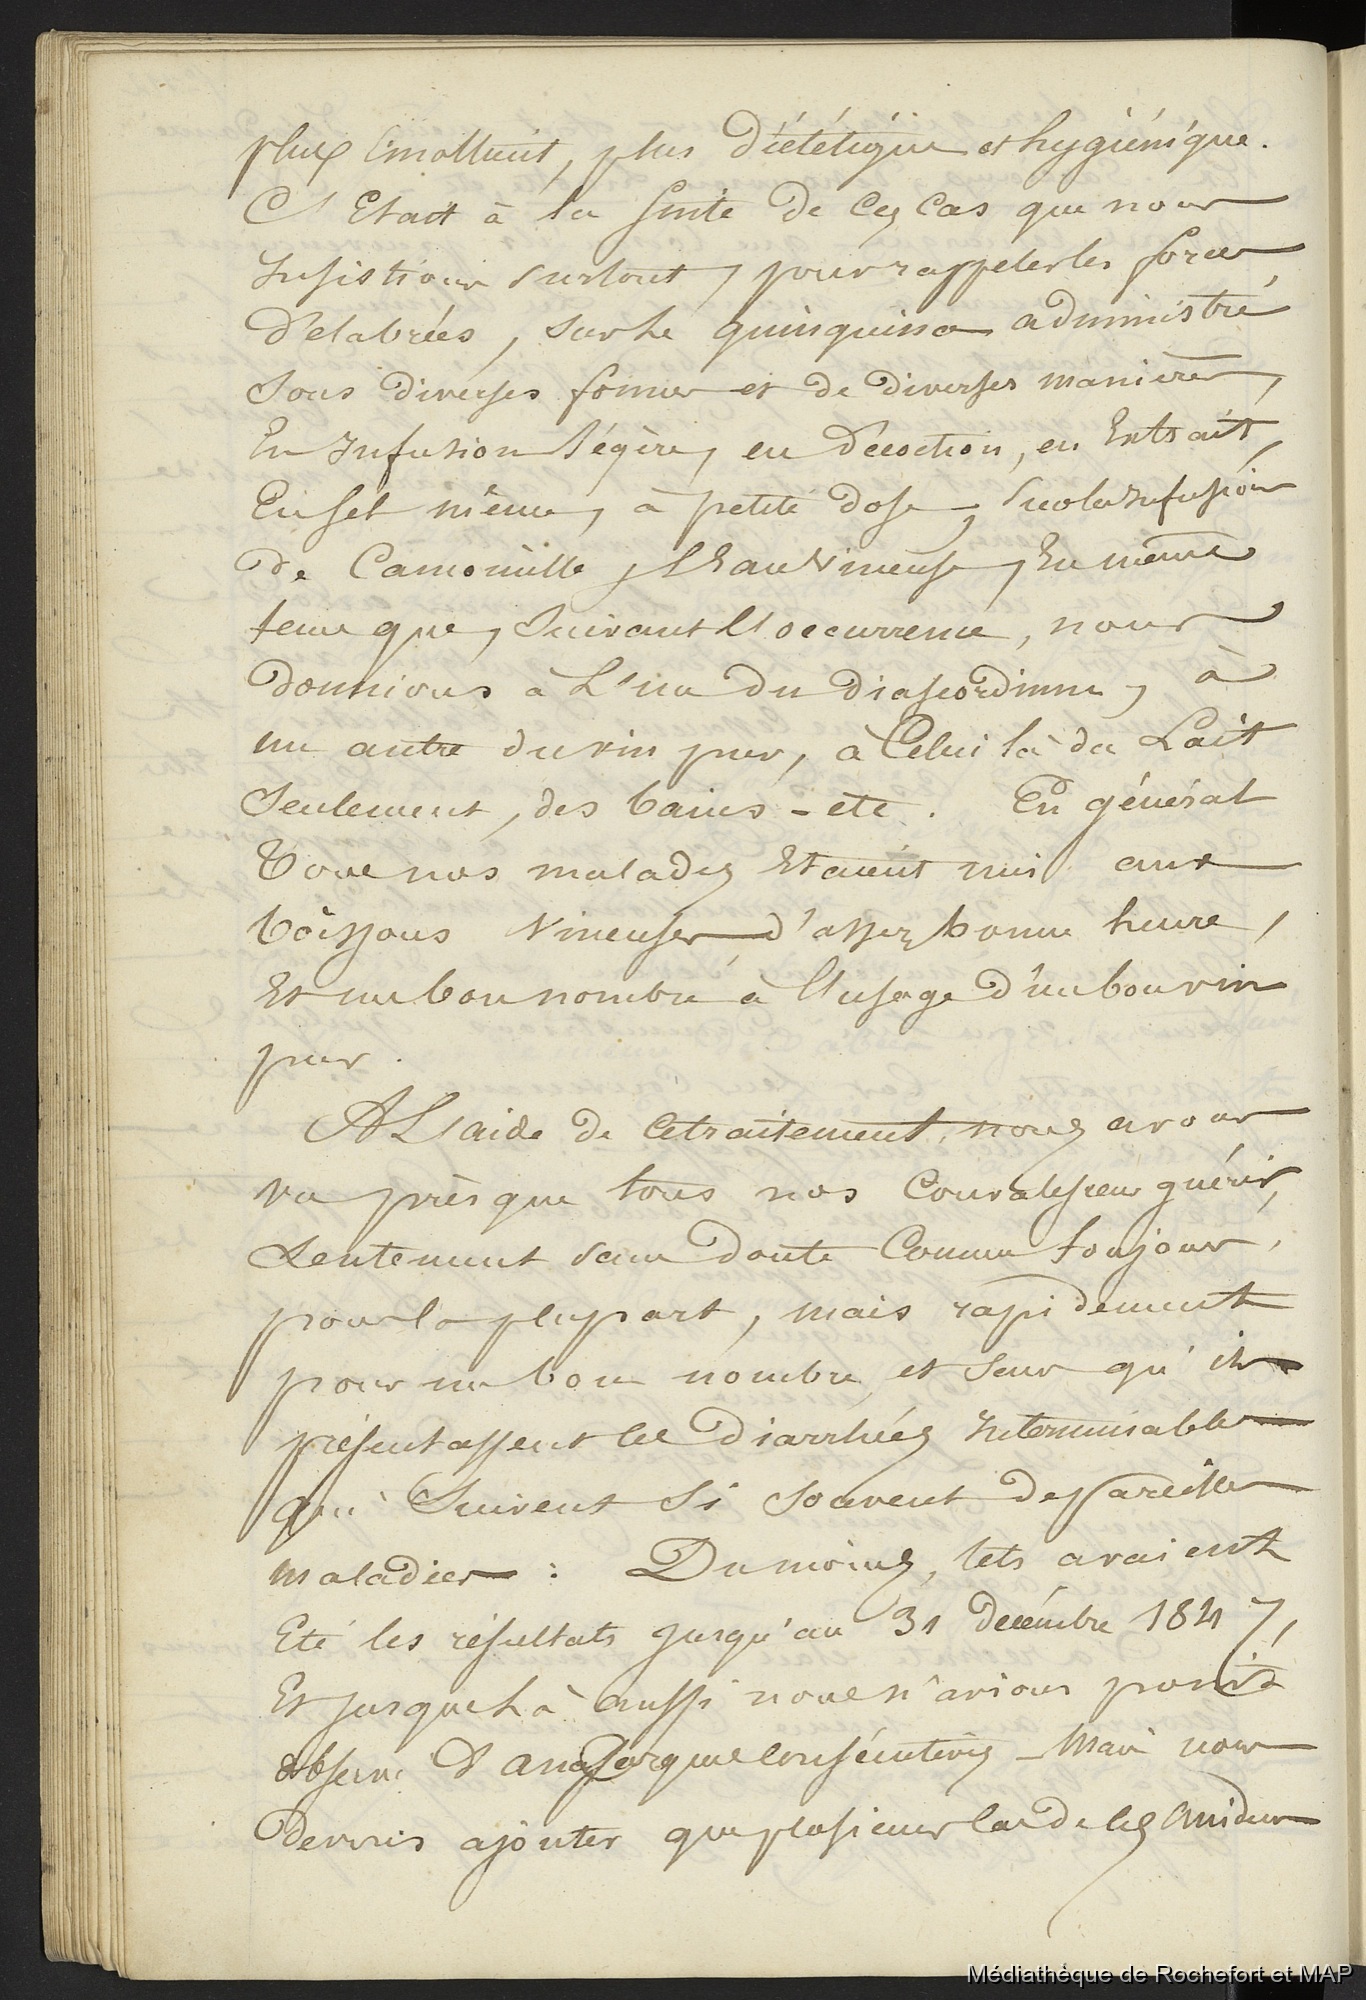 plus Emollient, plus Diététique et hygiénique.
C'Etait à la suite de ces cas que nous
Insistions surtout, pour rappeler les forces
Délabrées, sur le quinquina administré
sous diverses formes et de diverses manières,
En Infusion légère, en Décoction, en Extrait,
En sel même, à petite dose, sur la Infusion
de Camomille, L'Eau Vineuse, En même
tems que, suivant l'occurrence, nous
Donnions à L'un du diascordium, à
un autre du vin pur, à Celui là du Lait
Seulement, des bains - etc. En général
Tous nos malades Etaient mis aux
boissons Vineuses d'assez bonne heure,
Et un bon nombre à l'usage d'un bon vin
pur.
A L'aide de ce traitement, nous avons
vu presque tous nos Convalescens guérir,
Lentement sans doute Comme toujours,
pour la plupart, mais rapidement
pour un bon nombre et sans qu'ils
présentassent ces Diarrhées Interminables
qui Suivent si souvent de pareilles
maladies : Du moins, tels avaient
Eté les résultats jusqu'au 31 décembre 1847,
Et jusque là aussi nous n'avions point
observé d'anasarques consécutives - Mais nous
Devons ajouter que plusieurs cas de ces